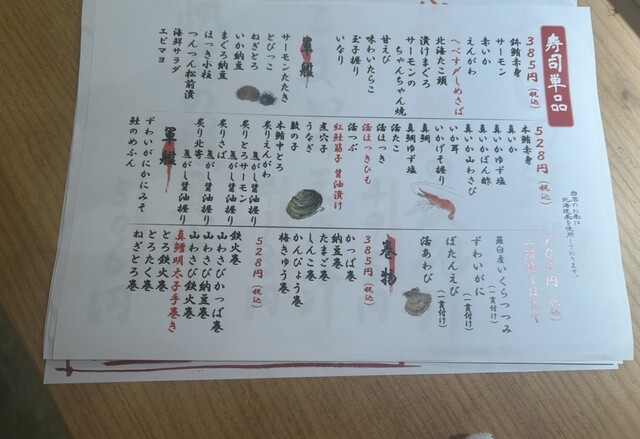 寿司単品
385円(税込)
鉢鮪赤身
サーモン
赤いか
えんがわ
へべす〆しめさば
北海たこ頭
漬けまぐろ
サーモンの
ちゃんちゃん焼
甘えび
味わいたらこ
玉子握り
いなり
軍艦
サーモンたたき
とびっこ
ねぎとろ
いか納豆
まぐろ納豆
ほっき小柱
つんつん松前漬
海鮮サラダ
エビマヨ
528円(税込)
本鮪赤身
真いか
真いかゆず塩
真いかぽん酢
真いか山わさび
いか耳
いかげそ握り
真鯛
真鯛ゆず塩
活たこ
活ほっき
活ほっきひも
活つぶ
紅鮭筋子 醤油漬け
煮穴子
うなぎ
数の子
本鮪中とろ
炙りえんがわ
焦がし醤油握り
炙りとろサーモン
焦がし醤油握り
炙りさば
焦がし醤油握り
炙り北寄
焦がし醤油握り
軍艦
ずわいがにかにみそ
鮭のめふん
当店のお米は
北海道米を使用しております。
円(税込)
羅臼産いくらつつみ
(一貫付け)
ずわいがに
(一貫付け)
ぼたんえび
(一貫付け)
活あわび
(一貫付け)
巻物
385円(税込)
かっぱ巻
納豆巻
たまご巻
しんこ巻
かんぴょう巻
梅きゅう巻
528円(税込)
鉄火巻
山わさびかっぱ巻
山わさび納豆巻
山わさび鉄火巻
真鱈明太子手巻き
とろ鉄火巻
とろたく巻
ねぎとろ巻